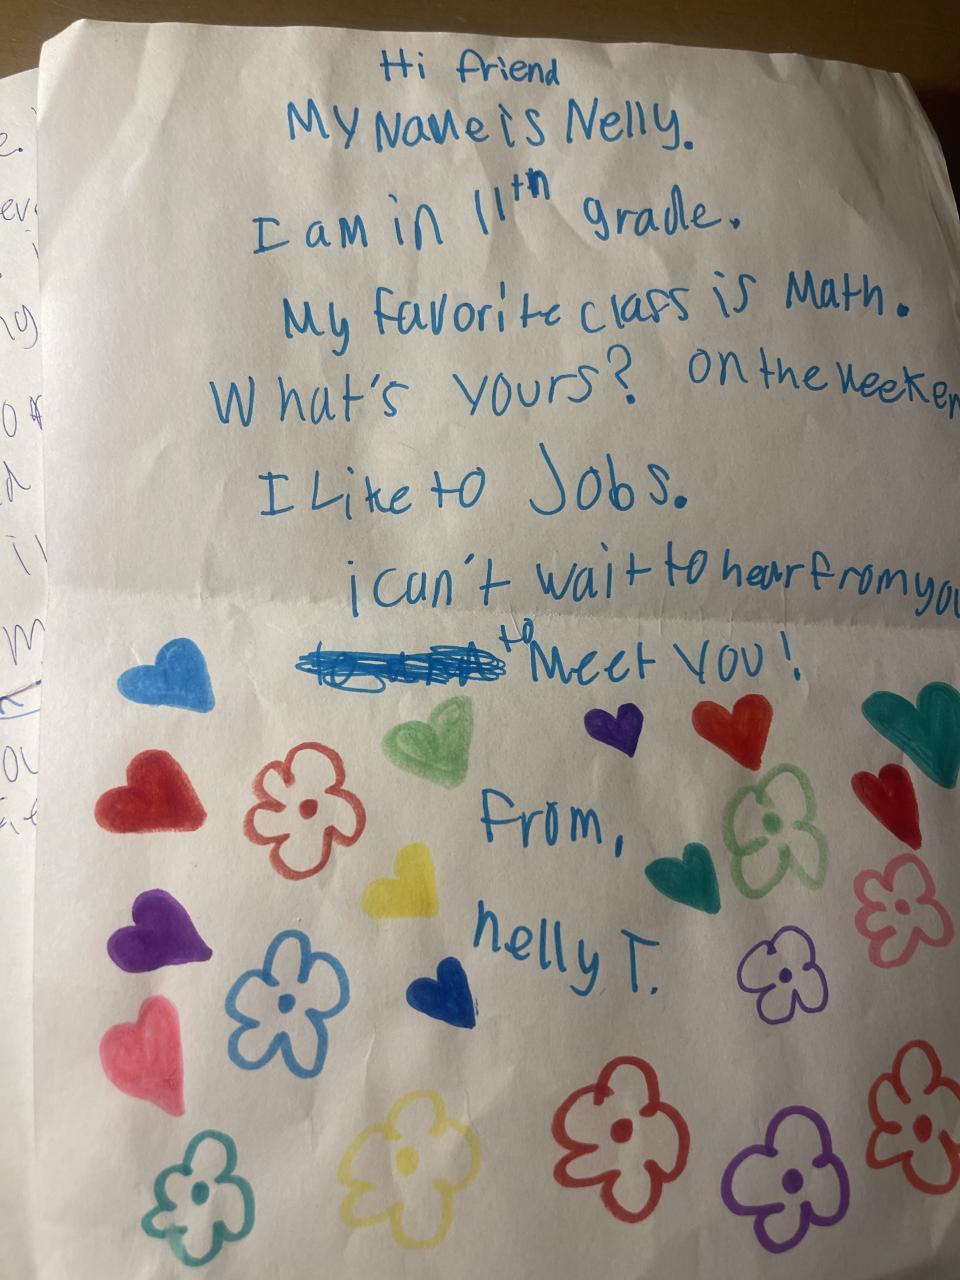 Hi friend
My Name is Nelly.
I am in 11th grade.
My favorite class is Math.
What's yours? on the weeken
I Like to Jobs.
i can't wait to hear from you
to Meet you!
From,
nelly T.